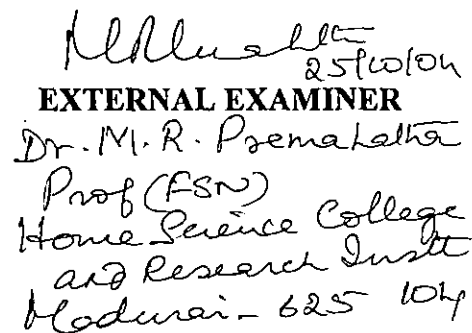 25/10/04
EXTERNAL EXAMINER
Dr. M. R. Premalatha
Prof (FSN)
Home Science College
and Research Instt
Madurai - 625 104